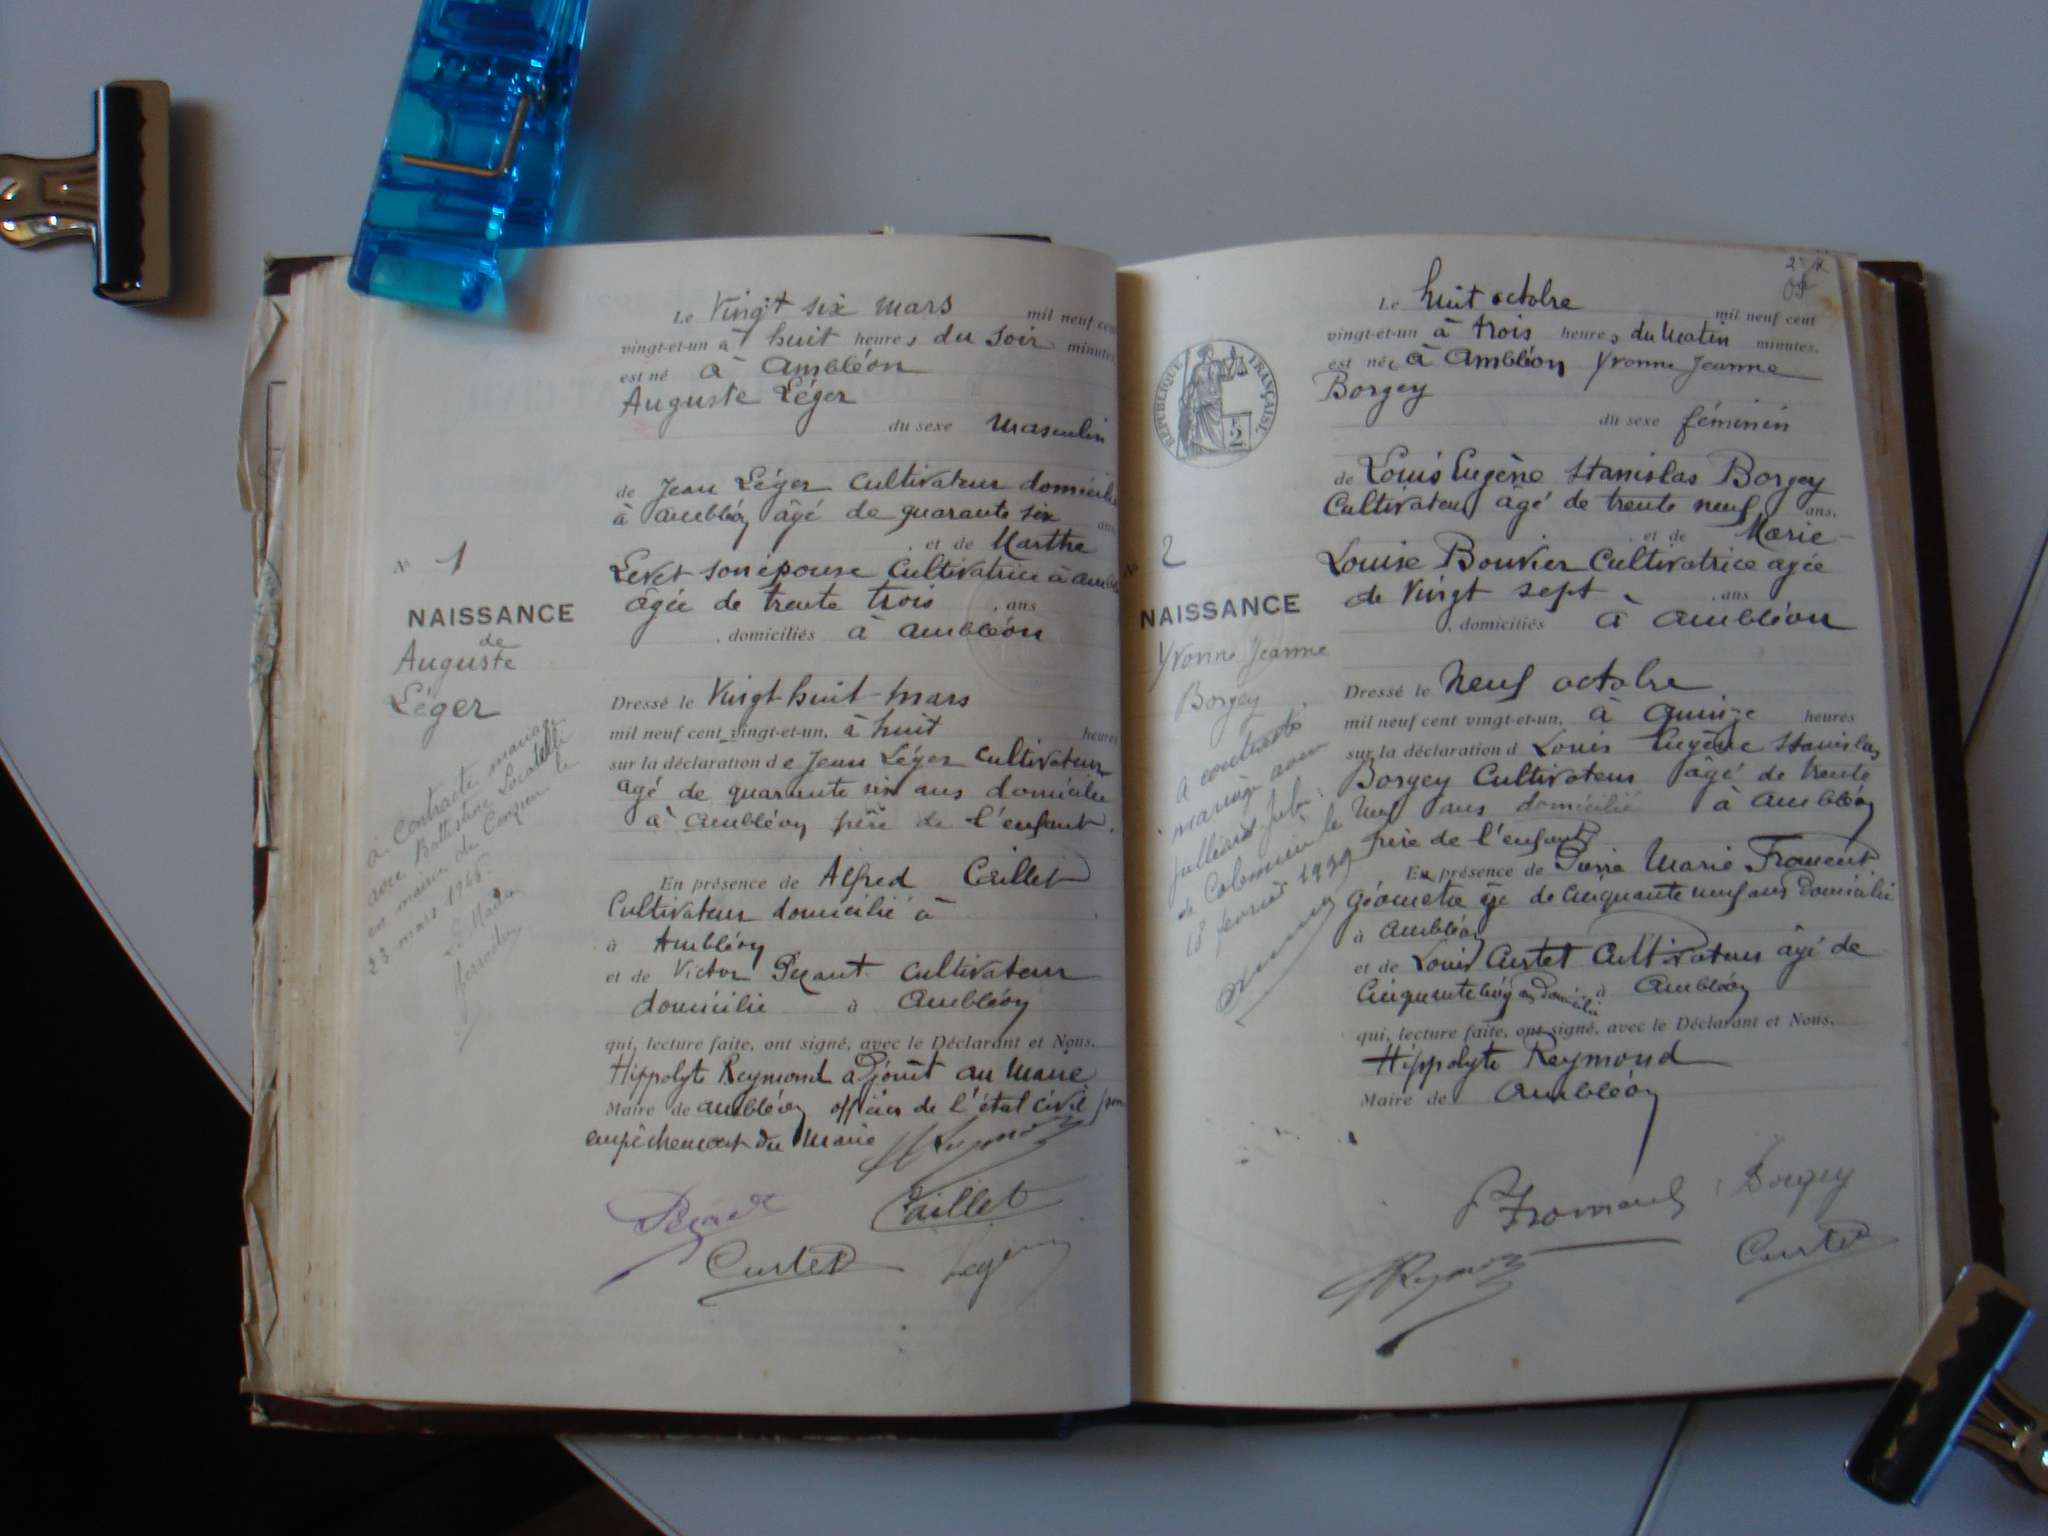 Le Vingt six mars mil neuf cent
vingt-et-un à huit heures du soir minutes,
est né à Ambléon
Auguste Léger
du sexe Masculin
de Jean Léger cultivateur domicilié
à Ambléon âgé de quarante six ans
et de Marthe
Levet son épouse Cultivatrice à
âgée de trente trois ans
domiciliés à Ambléon
N° 1
NAISSANCE
de
Auguste
Léger
à contracté mariage
avec Battistine Locatelli
en mairie de le
23 mars 1946.
Le Maire
Dressé le Vingt huit mars
mil neuf cent vingt-et-un, à huit heures
sur la déclaration de Jean Léger Cultivateur
âgé de quarante six ans domicilié
à Ambléon père de l'enfant.
En présence de Alfred Caillet
Cultivateur domicilié à
à Ambléon
et de Victor cultivateur
domicilié à Ambléon
qui, lecture faite, ont signé, avec le Déclarant et Nous.
Hippolyte Reymond adjoint au Maire
Maire de Ambléon officier de l'état civil
empêchement du Maire
Caillet
Curtet
2
RÉPUBLIQUE FRANÇAISE
5
Le huit octobre mil neuf cent
vingt-et-un à trois heures du Matin minutes,
est née à Ambléon Yvonne Jeanne
Borgey
du sexe féminin
de Louis Eugène Stanislas Borgey
Cultivateur âgé de trente neuf ans,
et de Marie
Louise Bouvier Cultivatrice agée
de Vingt sept ans
domiciliés à Ambléon
N° 2
NAISSANCE
Yvonne Jeanne
Borgey
A contracté
mariage avec
le
18 février 1939
Dressé le Neuf octobre
mil neuf cent vingt-et-un, à quinze heures
sur la déclaration d Louis Eugène Stanislas
Borgey Cultivateur âgé de trente
Neuf ans domicilié à Ambléon
père de l'enfant
En présence de Pierre Marie Froment
Géomètre âgé de cinquante neuf ans domicilié
à Ambléon
et de Louis Curtet Cultivateur âgé de
ans domicilié à Ambléon
qui, lecture faite, ont signé, avec le Déclarant et Nous.
Hippolyte Reymond
Maire de Ambléon
Froment Borgey
Curtet